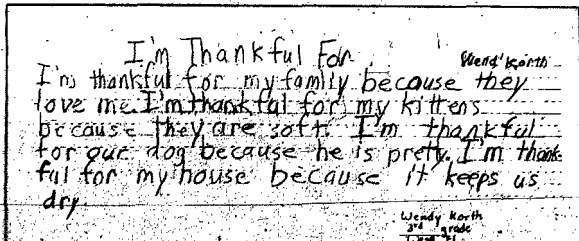 I'm Thankful For
Wend' Korth
I'm thankful for my family because they
love me. I'm thankful for my kittens
because they are soft. I'm thankful
for our dog because he is pretty. I'm thank-
ful for my house because it keeps us
dry.
Wendy Korth
3rd grade